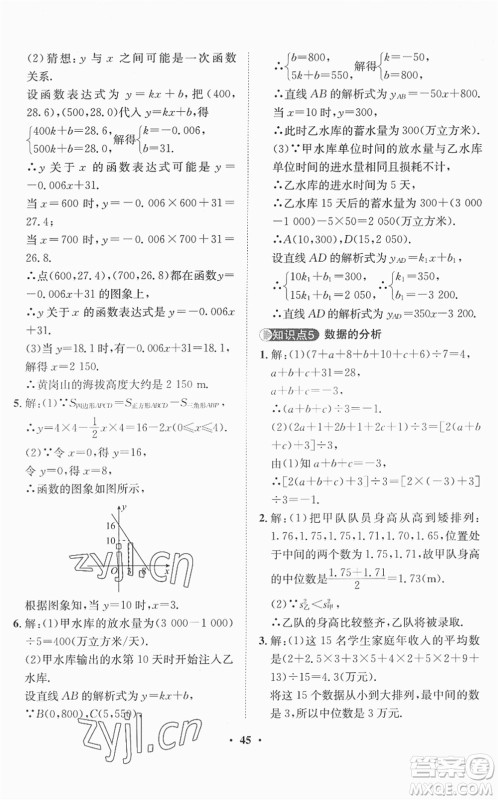 (2)猜想:y与x之间可能是一次函数
关系.
设函数表达式为y=kx+b,将(400,
28.6),(500,28.0)代入y=kx+b,得
{400k+b=28.6,
500k+b=28.0, 解得{k=-0.006,
b=31.
∴y关于x的函数表达式为
y=-0.006x+31.
当x=600时,y=-0.006x+31=
27.4;
当x=700时,y=-0.006x+31=
26.8.
∴点(600,27.4),(700,26.8)都在函数
y=-0.006x+31的图象上.
当y=18.1时,-0.006x+31=18.1.
解得x=2 150.
∴黄岗山的海拔高度大约是2 150 m.
5. 解:(1)∵S四边形APCD=S正方形ABCD-S三角形ABP,
∴y=4×4-1/2x×4=16-2x(0≤x≤4).
(2)∵令x=0,得y=16,
令y=0,得x=8,
∴函数的图象如图所示.
y
16
10
O 3 8 x
根据图象知,当y=10时,x=3.
6. 解:(1)甲水库的放水量为(3 000-1 000)
÷5=400(万立方米/天).
(2)甲水库输出的水第10天时开始注入乙
水库.
设直线AB的解析式为y=kx+b.
∵B(0,800),C(5,550),
∴{b=800,
5k+b=550, 解得{k=-50,
b=800.
∴直线AB的解析式为yAB=-50x+
800.
当x=10时,y=300.
∴此时乙水库的蓄水量为300(万立方米).
(3)∵甲水库单位时间的放水量与乙水库
单位时间的进水量相等且损耗不计,
∴乙水库的进水时间为5天.
∵乙水库15天后的蓄水量为300+(3 000
-1 000)-5×50=2 050(万立方米),
∴A(10,300),D(15,2 050).
设直线AD的解析式为y=k1x+b1,
∴{10k1+b1=300,
15k1+b1=2 050, 解得{k1=350,
b1=-3 200.
∴直线AD的解析式为yAD=350x-3 200.
知识点5 数据的分析
1. 解:(1)(7+a+8+b+10+c+6)÷7=4,
a+b+c+31=28,解得a+b+c=-3.
∴(a+b+c)÷3=-1.
(2)(2a+1+2b+1+2c+1)÷3=
[2(a+b+c)+3]÷3.
由(1)知a+b+c=-3.
∴[2(a+b+c)+3]÷3=[2×(-3)+
3]÷3=-1.
2. 解:(1)把甲队队员身高从高到矮排列:
1.76,1.75,1.75,1.71,1.70,1.65,位置
处于中间的两数为1.75,1.71,故甲队身高
的中位数是(1.75+1.71)/2=1.73(m).
(2)∵s²乙<s²甲,
∴乙队的身高比较整齐,乙队将被录取.
3. 解:(1)这15名学生家庭年收入的平均数
是(2+2.5×3+3×5+4×2+5×2+9+
13)÷15=4.3(万元).
将这15个数据从小到大排列,最中间的
数是3,所以中位数是3万元.
zyjl.cn
zyjl.cn
答案圈
MXQE.COM
· 45 ·